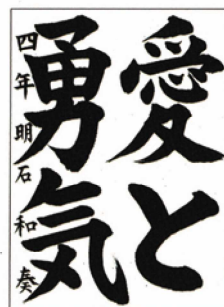 愛と
勇気
四年明石和奏